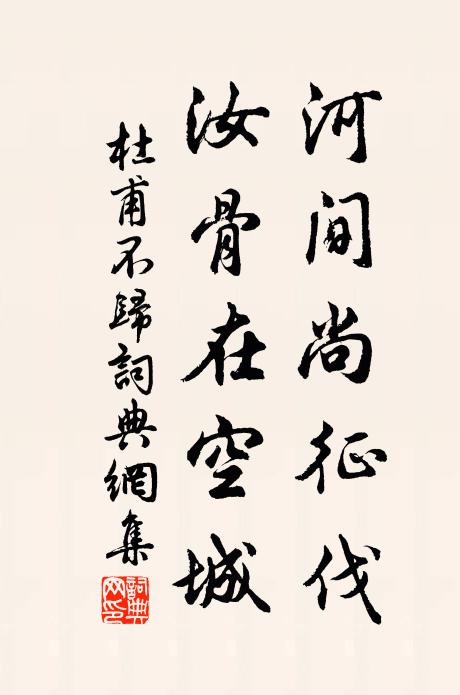 河間尚征伐
汝骨在空城
杜甫不歸詞典網集
詞典网印